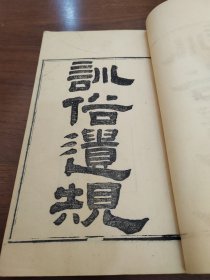 訓俗遺規